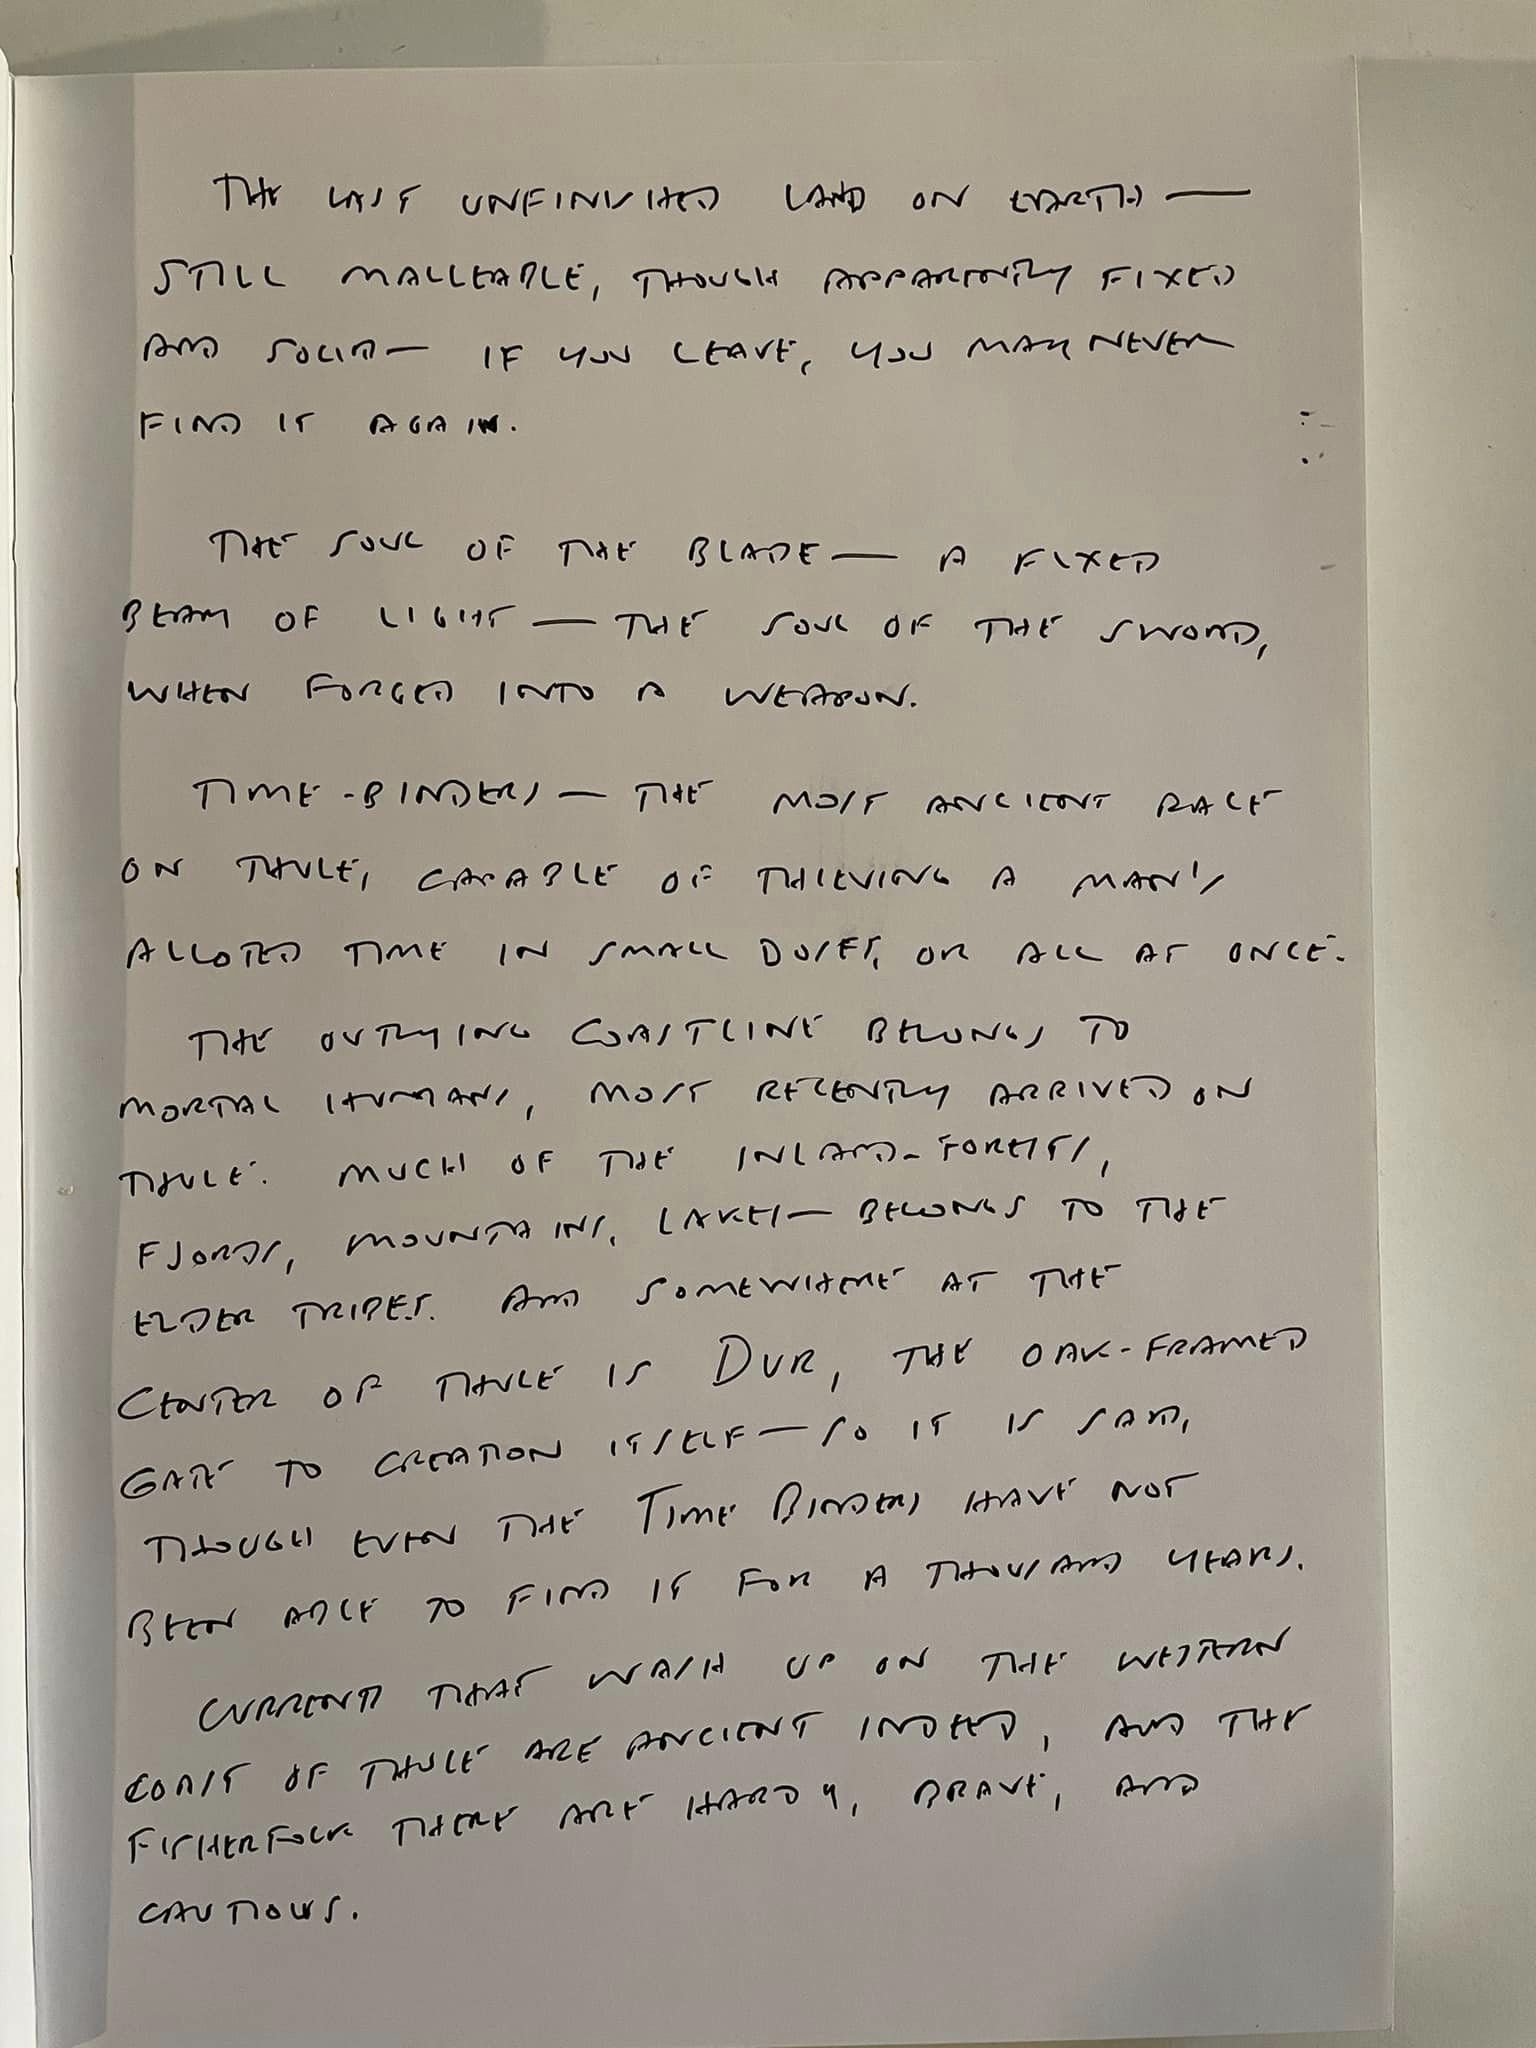 THE LAST UNFINISHED LAND ON EARTH —
STILL MALLEABLE, THOUGH APPARENTLY FIXED
AND SOLID — IF YOU LEAVE, YOU MAY NEVER
FIND IT AGAIN.
THE SOUL OF THE BLADE — A FIXED
BEAM OF LIGHT — THE SOUL OF THE SWORD,
WHEN FORGED INTO A WEAPON.
TIME-BINDERS — THE MOST ANCIENT RACE
ON THULE, CAPABLE OF THIEVING A MAN'S
ALLOTED TIME IN SMALL DOSES, OR ALL AT ONCE.
THE OUTLYING COASTLINE BELONGS TO
MORTAL HUMANS, MOST RECENTLY ARRIVED ON
THULE. MUCH OF THE INLAND — FORESTS,
FJORDS, MOUNTAINS, LAKES — BELONGS TO THE
ELDER TRIBES. AND SOMEWHERE AT THE
CENTER OF THULE IS DUR, THE OAK-FRAMED
GATE TO CREATION ITSELF — SO IT IS SAID,
THOUGH EVEN THE TIME BINDERS HAVE NOT
BEEN ABLE TO FIND IT FOR A THOUSAND YEARS.
CURRENTS THAT WASH UP ON THE WESTERN
COAST OF THULE ARE ANCIENT INDEED, AND THE
FISHERFOLK THERE ARE HARDY, BRAVE, AND
CAUTIOUS.